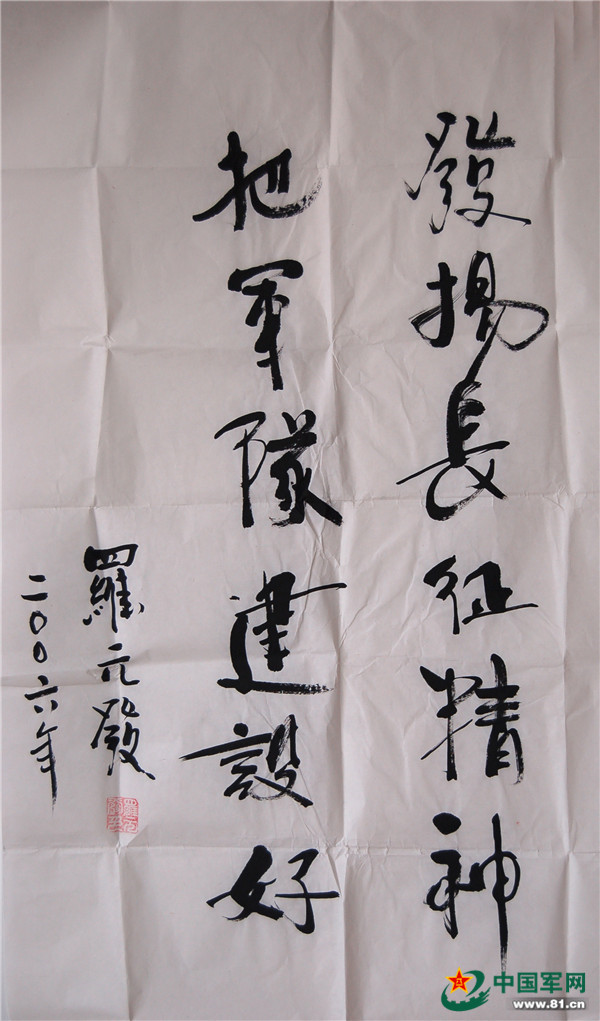 發揚長征精神
把軍隊建設好
羅元發
二〇〇六年
中国军网
www.81.cn